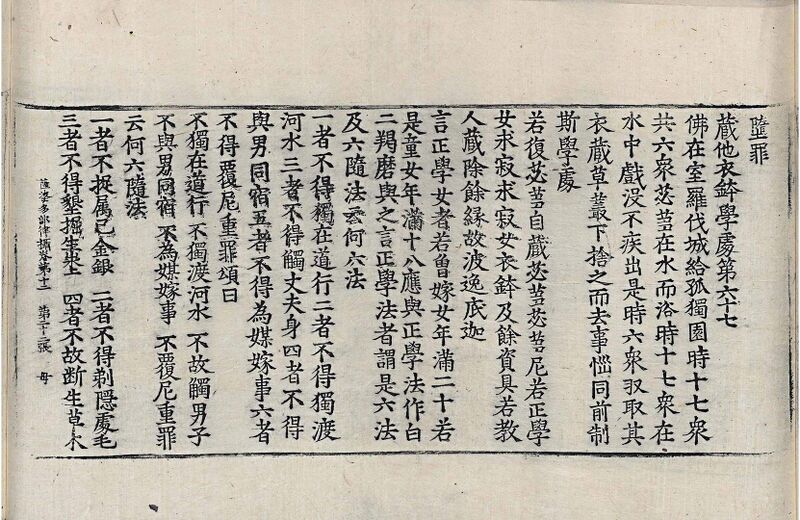 墮罪
藏他衣鉢學處第六十七
佛在室羅伐城給孤獨園時十七衆
共六衆苾芻在水而浴時十七衆在
水中戲没不疾出是時六衆収取其
衣藏草叢下捨之而去事惱同前制
斯學處
若復苾芻自藏苾芻苾芻尼若正學
女求寂求寂女衣鉢及餘資具若教
人藏除餘緣故波逸底迦
言正學女者若曽嫁女年滿二十若
是童女年滿十八應與正學法作白
二羯磨與之言正學法者謂是六法
及六隨法云何六法
一者不得獨在道行二者不得獨渡
河水三者不得觸丈夫身四者不得
與男同宿五者不得為媒嫁事六者
不得覆尼重罪頌曰
不獨在道行 不獨渡河水 不故觸男子
不與男同宿 不為媒嫁事 不覆尼重罪
云何六隨法
一者不捉属已金銀 二者不得剃隱處毛
三者不得墾掘生地 四者不故断生草木
薩婆多部律攝卷第十二 第二十二張 母